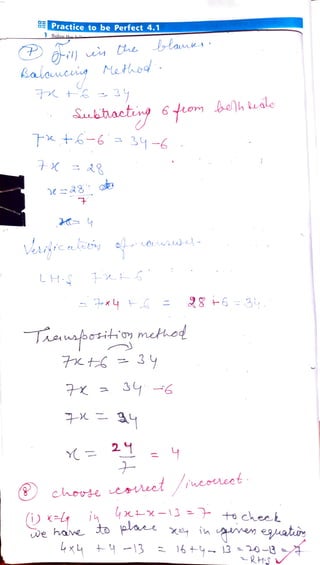 Practice to be Perfect 4.1
⑦ Fill in the blanks.
Balancing Method.
7x + 6 = 34
Subtracting 6 from both side
7x + 6 - 6 = 34 - 6
7x = 28
x = 28/7
x = 4
Verification of
LHS 7x + 6
= 7x4 + 6 = 28 + 6 = 34.
Transposition method
7x + 6 = 34
7x = 34 - 6
7x = 34
x = 24/7 = 4
⑧ choose correct / incorrect.
(i) x=4 in 4x + x - 13 = 7 to check
we have to place x=4 in given equation
4x4 + 4 - 13 = 16 + 4 - 13 = 20 - 13 = 7
= RHS ✓